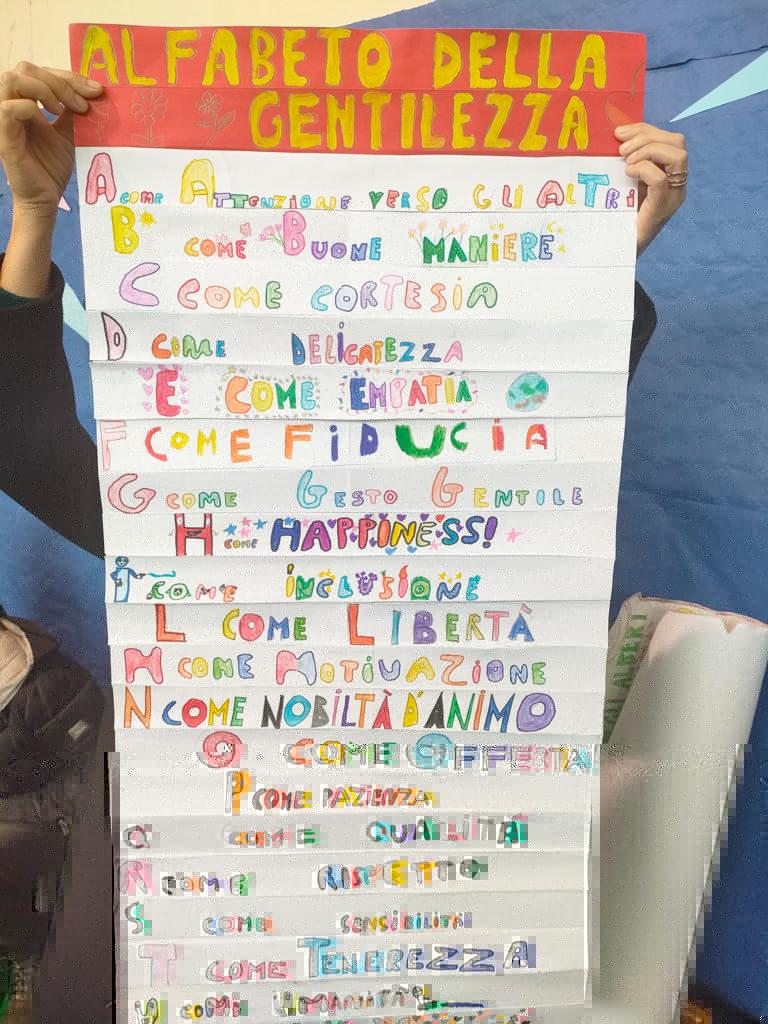 ALFABETO DELLA
GENTILEZZA
A COME ATTENZIONE VERSO GLI ALTRI
B COME BUONE MANIERE
C COME CORTESIA
D COME DELICATEZZA
E COME EMPATIA
F COME FIDUCIA
G COME GESTO GENTILE
H COME HAPPINESS!
I COME INCLUSIONE
L COME LIBERTÀ
M COME MOTIVAZIONE
N COME NOBILTÀ D'ANIMO
O COME OFFERTA
P COME PAZIENZA
Q COME QUALITÀ
R COME RISPETTO
S COME SENSIBILITÀ
T COME TENEREZZA
U COME UMANITÀ
ALBERI